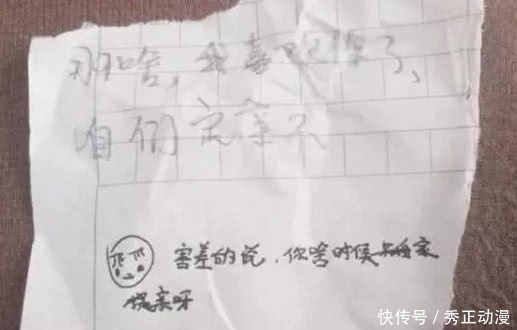 那啥，我喜欢你了、
咱们定亲不
害差的说，你啥时候家
提亲呀
快传号／秀正动漫